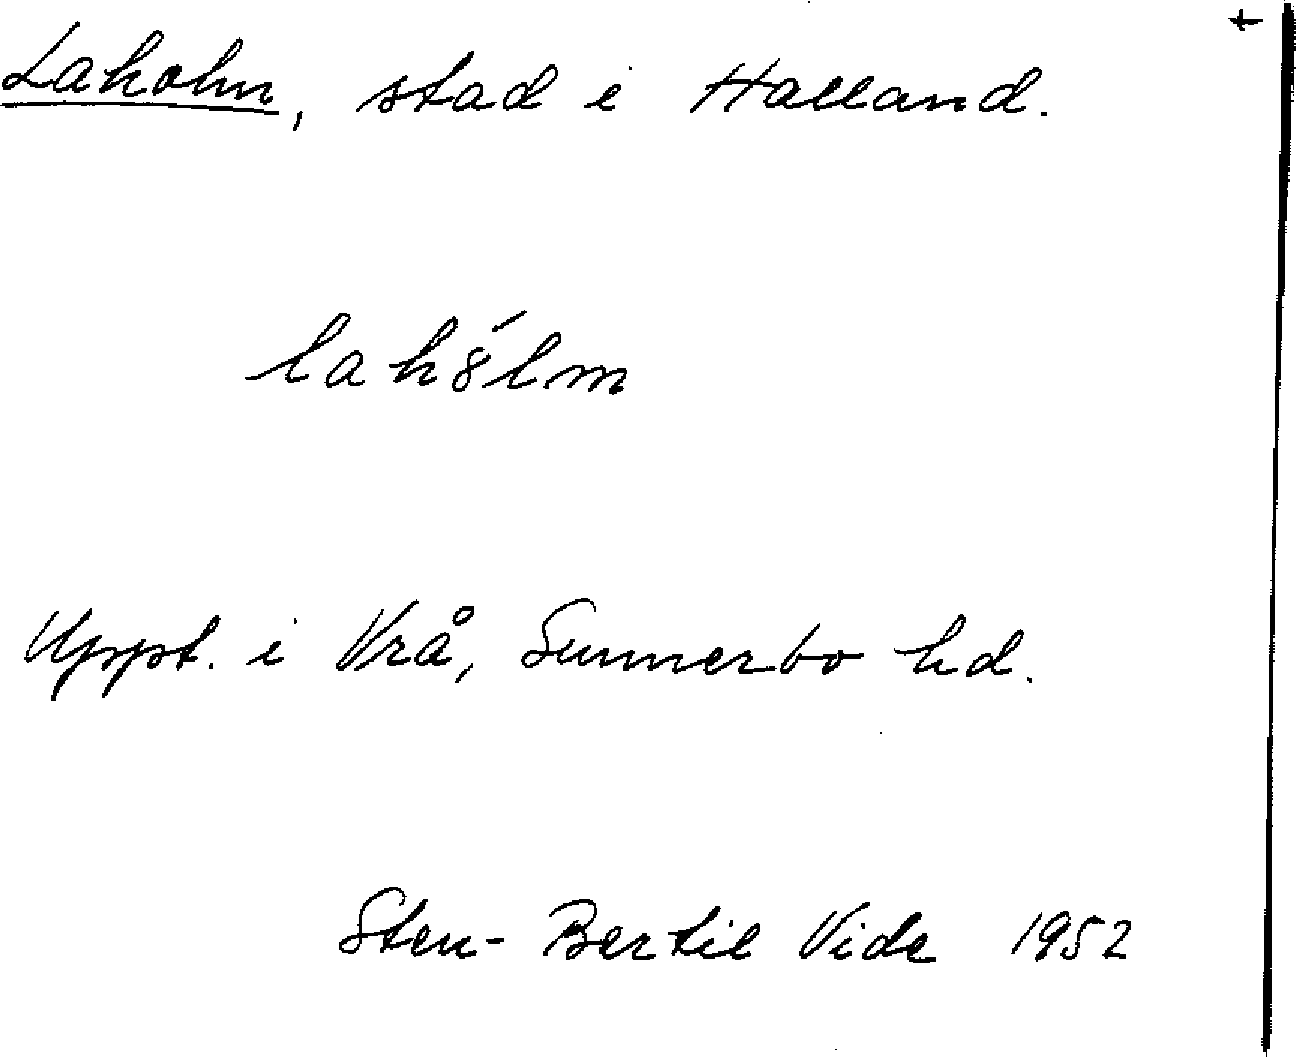 Laholm, stad i Halland.
lahólm
Uppt. i Vrå, Sunnerbo hd.
Sten-Bertil Vide 1952